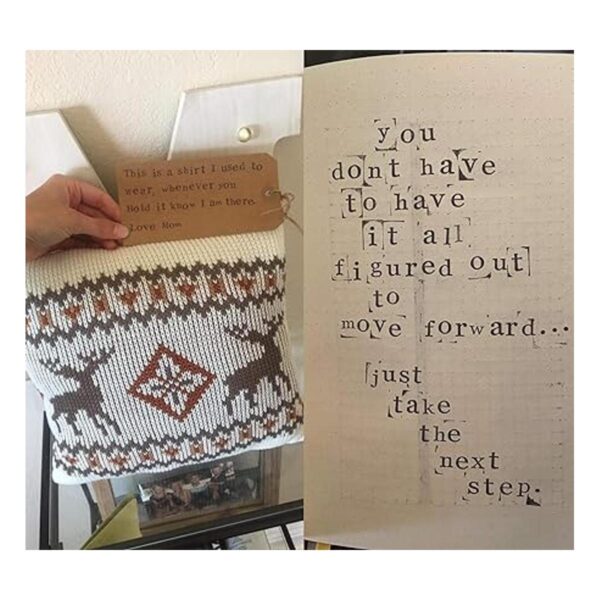 This is a shirt I used to
wear, whenever you
Hold it know I am there.
Love Mom
you
dont have
to have
it all
figured out
to
move forward...
just
take
the
next
step.